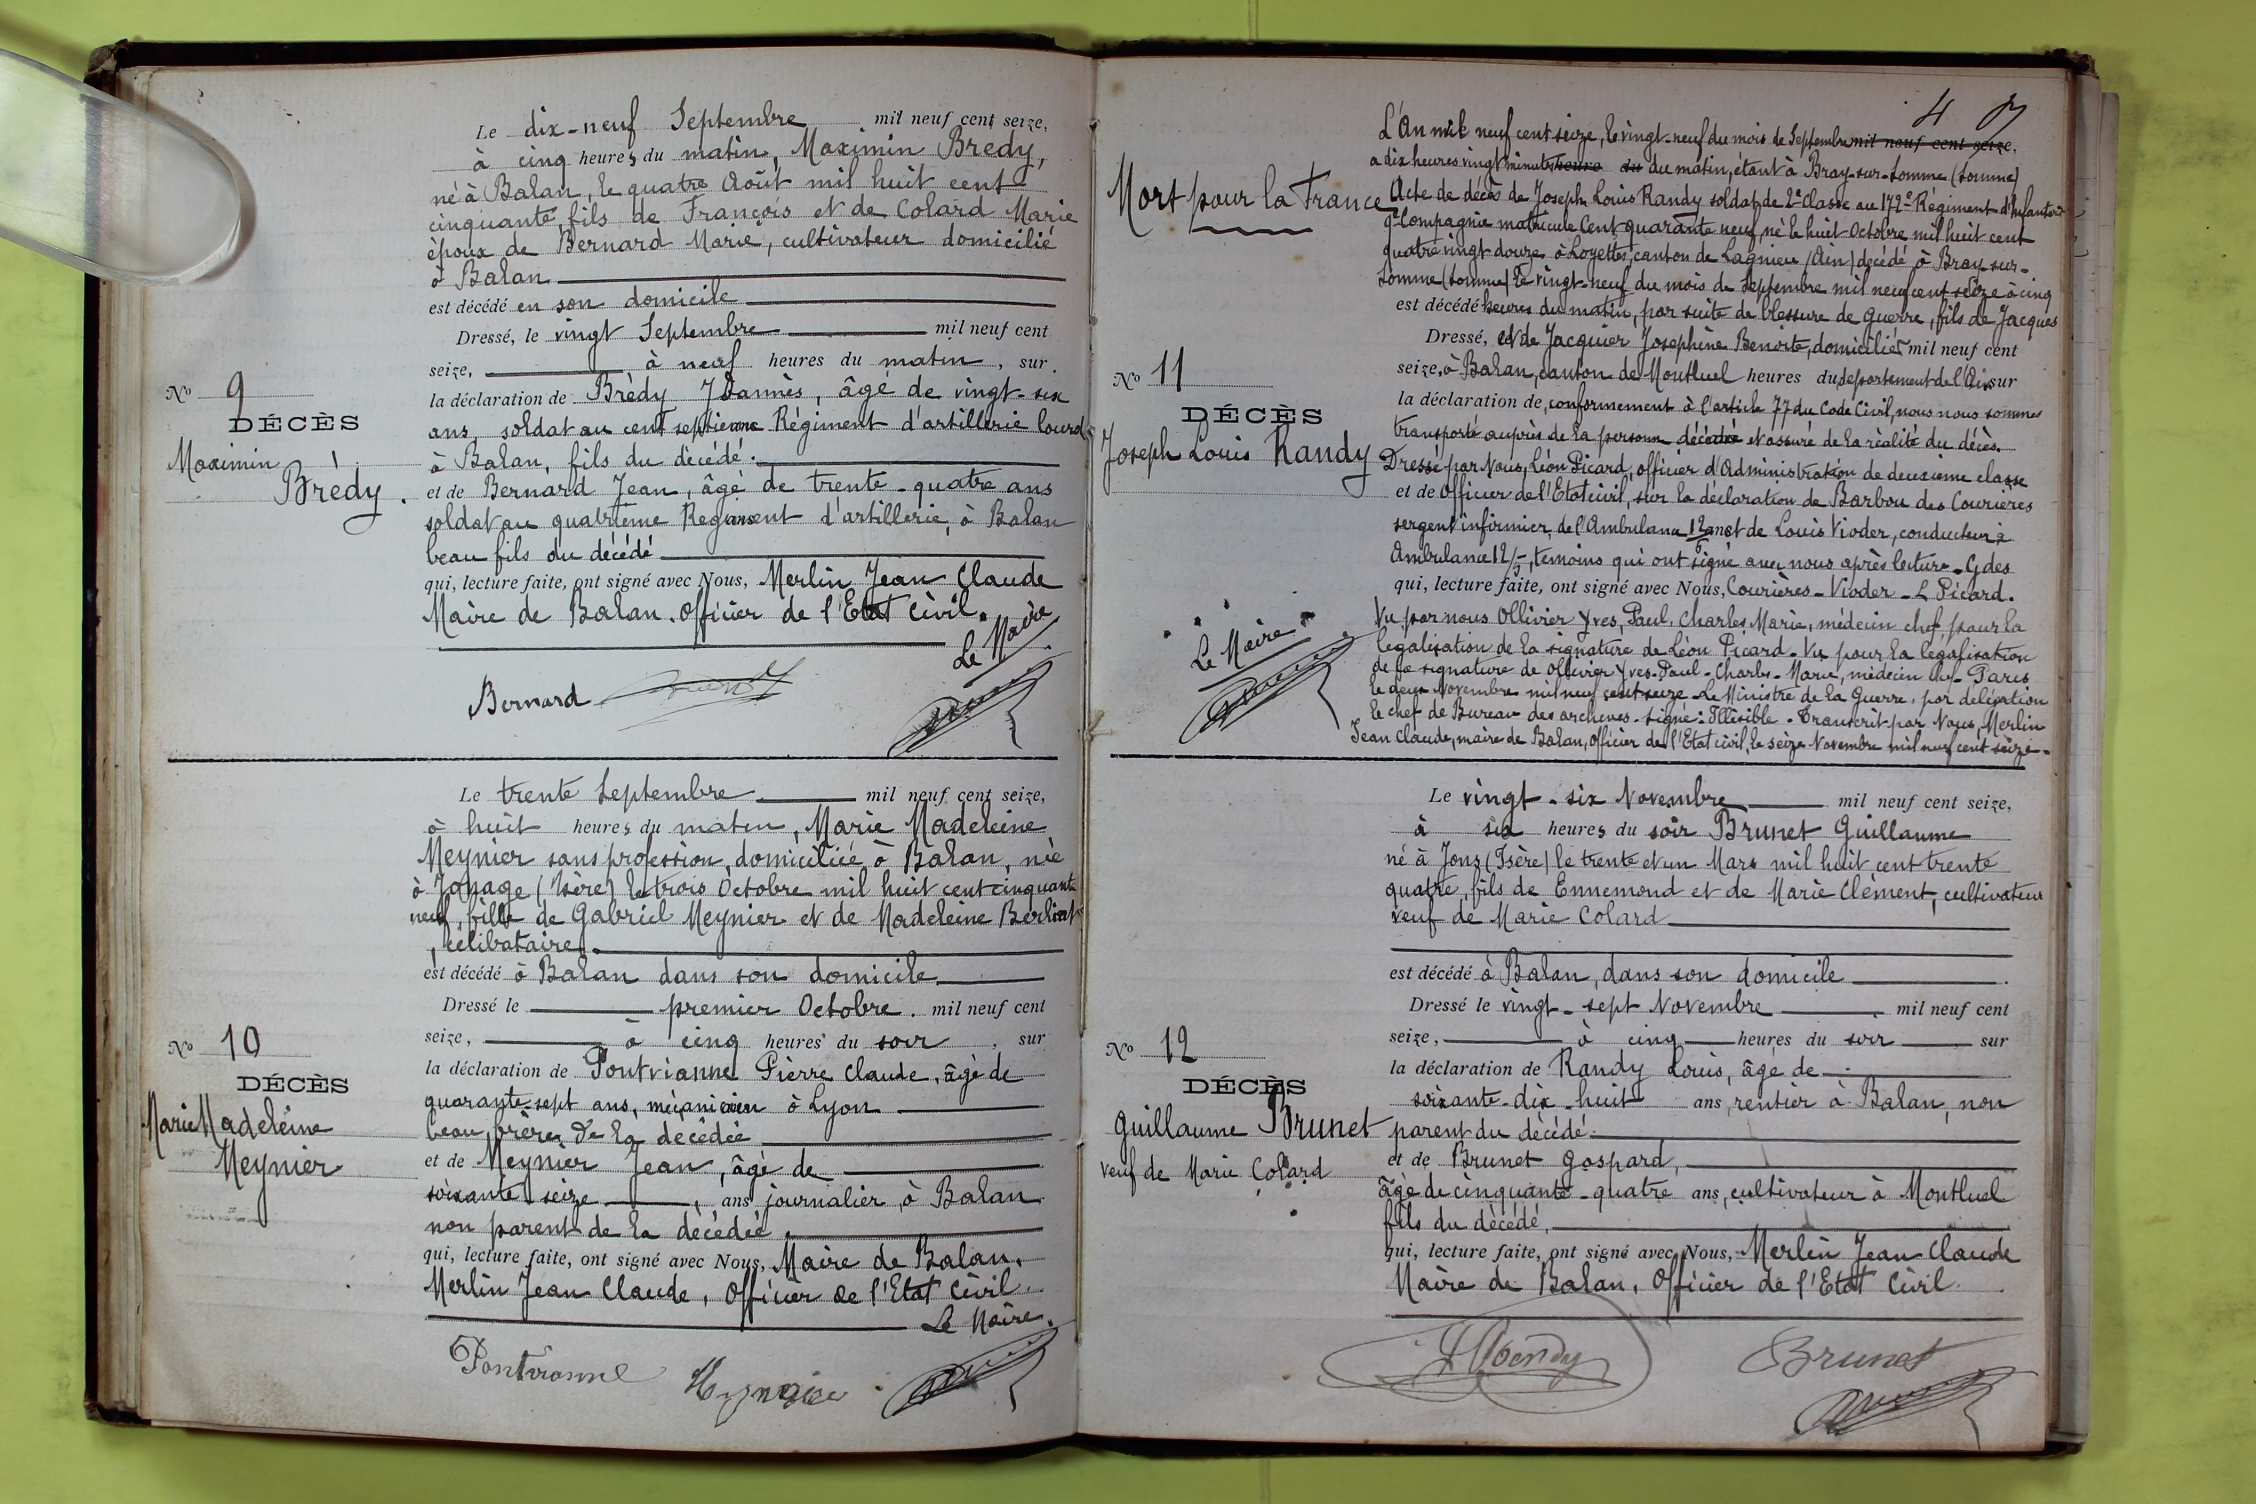 Le dix-neuf Septembre mil neuf cent seize,
à cinq heures du matin, Maximin Brèdy,
né à Balan, le quatre Août mil huit cent
cinquante, fils de François et de Colard Marie
époux de Bernard Marie, cultivateur domicilié
à Balan
est décédé en son domicile
Dressé, le vingt Septembre mil neuf cent
seize, à neuf heures du matin, sur
No 9
la déclaration de Brèdy Joannès, âgé de vingt-six
DÉCÈS
ans, soldat au cent septieme Règiment d'artillerie lourde
Maximin
à Balan, fils du décédé.
Brèdy.
et de Bernard Jean, âgé de trente-quatre ans
soldat au quatrième Regiment d'artillerie, à Balan
beau fils du décédé
qui, lecture faite, ont signé avec Nous, Merlin Jean Claude
Maire de Balan. Officier de l'Etat Civil.
Le Maire
Bernard
Le trente Septembre mil neuf cent seize,
à huit heures du matin, Marie Madeleine
Meynier sans profession, domiciliée à Balan, née
à Jonage (Isère) le trois Octobre mil huit cent cinquante
neuf, fille de Gabriel Meynier et de Madeleine Berliat
, célibataire
est décédé à Balan dans son domicile
Dressé le premier Octobre. mil neuf cent
seize, à cinq heures du soir, sur
No 10
la déclaration de Pontvianne Pierre Claude, âgé de
DÉCÈS
quarante-sept ans, mécanicien à Lyon
Marie Madeleine
beau frère de la décédée
Meynier
et de Meynier Jean, âgé de
soixante seize, ans journalier, à Balan
non parent de la décédée
qui, lecture faite, ont signé avec Nous, Maire de Balan.
Merlin Jean Claude, Officier de l'Etat Civil.
Le Maire.
Pontvianne
4
L'An mil neuf cent seize, le vingt-neuf du mois de Septembre mil neuf cent seize,
a dix heures vingt minutes heure du du matin, étant à Bray-sur-Somme (Somme)
Mort pour la France
Acte de décès de Joseph Louis Randy soldat de 2e Classe au 172e Régiment d'Infanterie
9e Compagnie matricule Cent quarante neuf, né le huit Octobre mil huit cent
quatre vingt douze à Loyettes, canton de Lagnieu (Ain) décédé à Bray-sur-
Somme (Somme) le vingt-neuf du mois de Septembre mil neuf cent seize à cinq
est décédé heures du matin, par suite de blessure de guerre, fils de Jacques
Dressé, et de Jacquier Josephine Benoite, domiciliés mil neuf cent
No 11
seize, à Balan, canton de Montluel heures du, departement de l'Ain sur
DÉCÈS
la déclaration de, conformement à l'article 77 du Code Civil, nous nous sommes
Joseph Louis Randy
transporté auprès de la personne décédée et assuré de la réalité du décès.
Dressé par Nous, Léon Picard, officier d'Administration de deuxieme classe
et de Officier de l'Etat civil, sur la déclaration de Barbou des Courières
sergent infirmier, de l'Ambulance 12/5 et de Louis Vioder, conducteur à
Ambulance 12/5, temoins qui ont signé avec nous après lecture - G des
qui, lecture faite, ont signé avec Nous, Courières - Vioder - L Picard.
Vu par nous Ollivier Yves, Paul, Charles Marie, médecin chef, pour la
Le Maire
legalisation de la signature de Léon Picard - Vu pour la legalisation
de la signature de Ollivier Yves-Paul-Charles-Marie, médecin chef - Paris
le deux Novembre mil neuf cent seize - Le Ministre de la Guerre, par délégation
le chef de Bureau des archives - signé: Illisible. Transcrit par Nous, Merlin
Jean Claude, maire de Balan, Officier de l'Etat civil, le seize Novembre mil neuf cent seize.
Le vingt-six Novembre mil neuf cent seize,
à six heures du soir Brunet Guillaume
né à Jons (Isère) le trente et un Mars mil huit cent trente
quatre, fils de Ennemond et de Marie Clèment, cultivateur
veuf de Marie Colard
est décédé à Balan, dans son domicile
Dressé le vingt-sept Novembre mil neuf cent
seize, à cinq heures du soir sur
No 12
la déclaration de Randy Louis, âgé de
DÉCÈS
soixante-dix-huit ans, rentier à Balan, non
Guillaume Brunet
parent du décédé
veuf de Marie Colard
et de Brunet Gaspard,
âgé de cinquante-quatre ans, cultivateur à Montluel
fils du décédé,
qui, lecture faite, ont signé avec Nous, Merlin Jean Claude
Maire de Balan, Officier de l'Etat Civil
Randy
Brunet